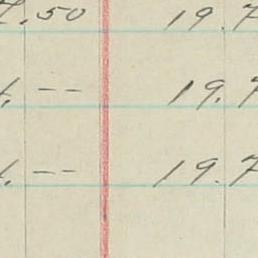 .50 19.7
. -- 19.7
. -- 19.7